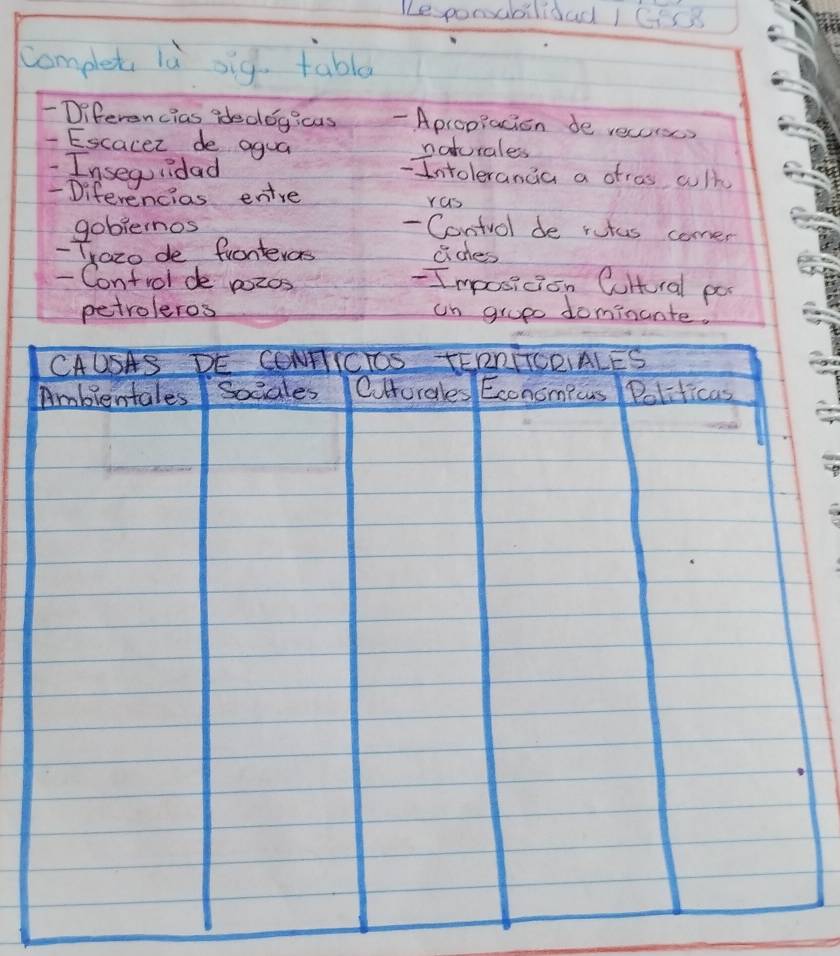 Responsabilidad
Completa la sig. tabla
- Diferencias ideológicas
- Escacez de agua
- Inseguridad
- Diferencias entre
gobiernos
- Trazo de fronteras
- Control de pozos
petroleros
- Apropiación de recursos
naturales
- Intolerancia a otras cultu
ras
- Control de rutas comer
ciales
- Imposición Cultural por
un grupo dominante.
CAUSAS DE CONFLICTOS TERRITORIALES
Ambientales Sociales Culturales Económicas Politicas